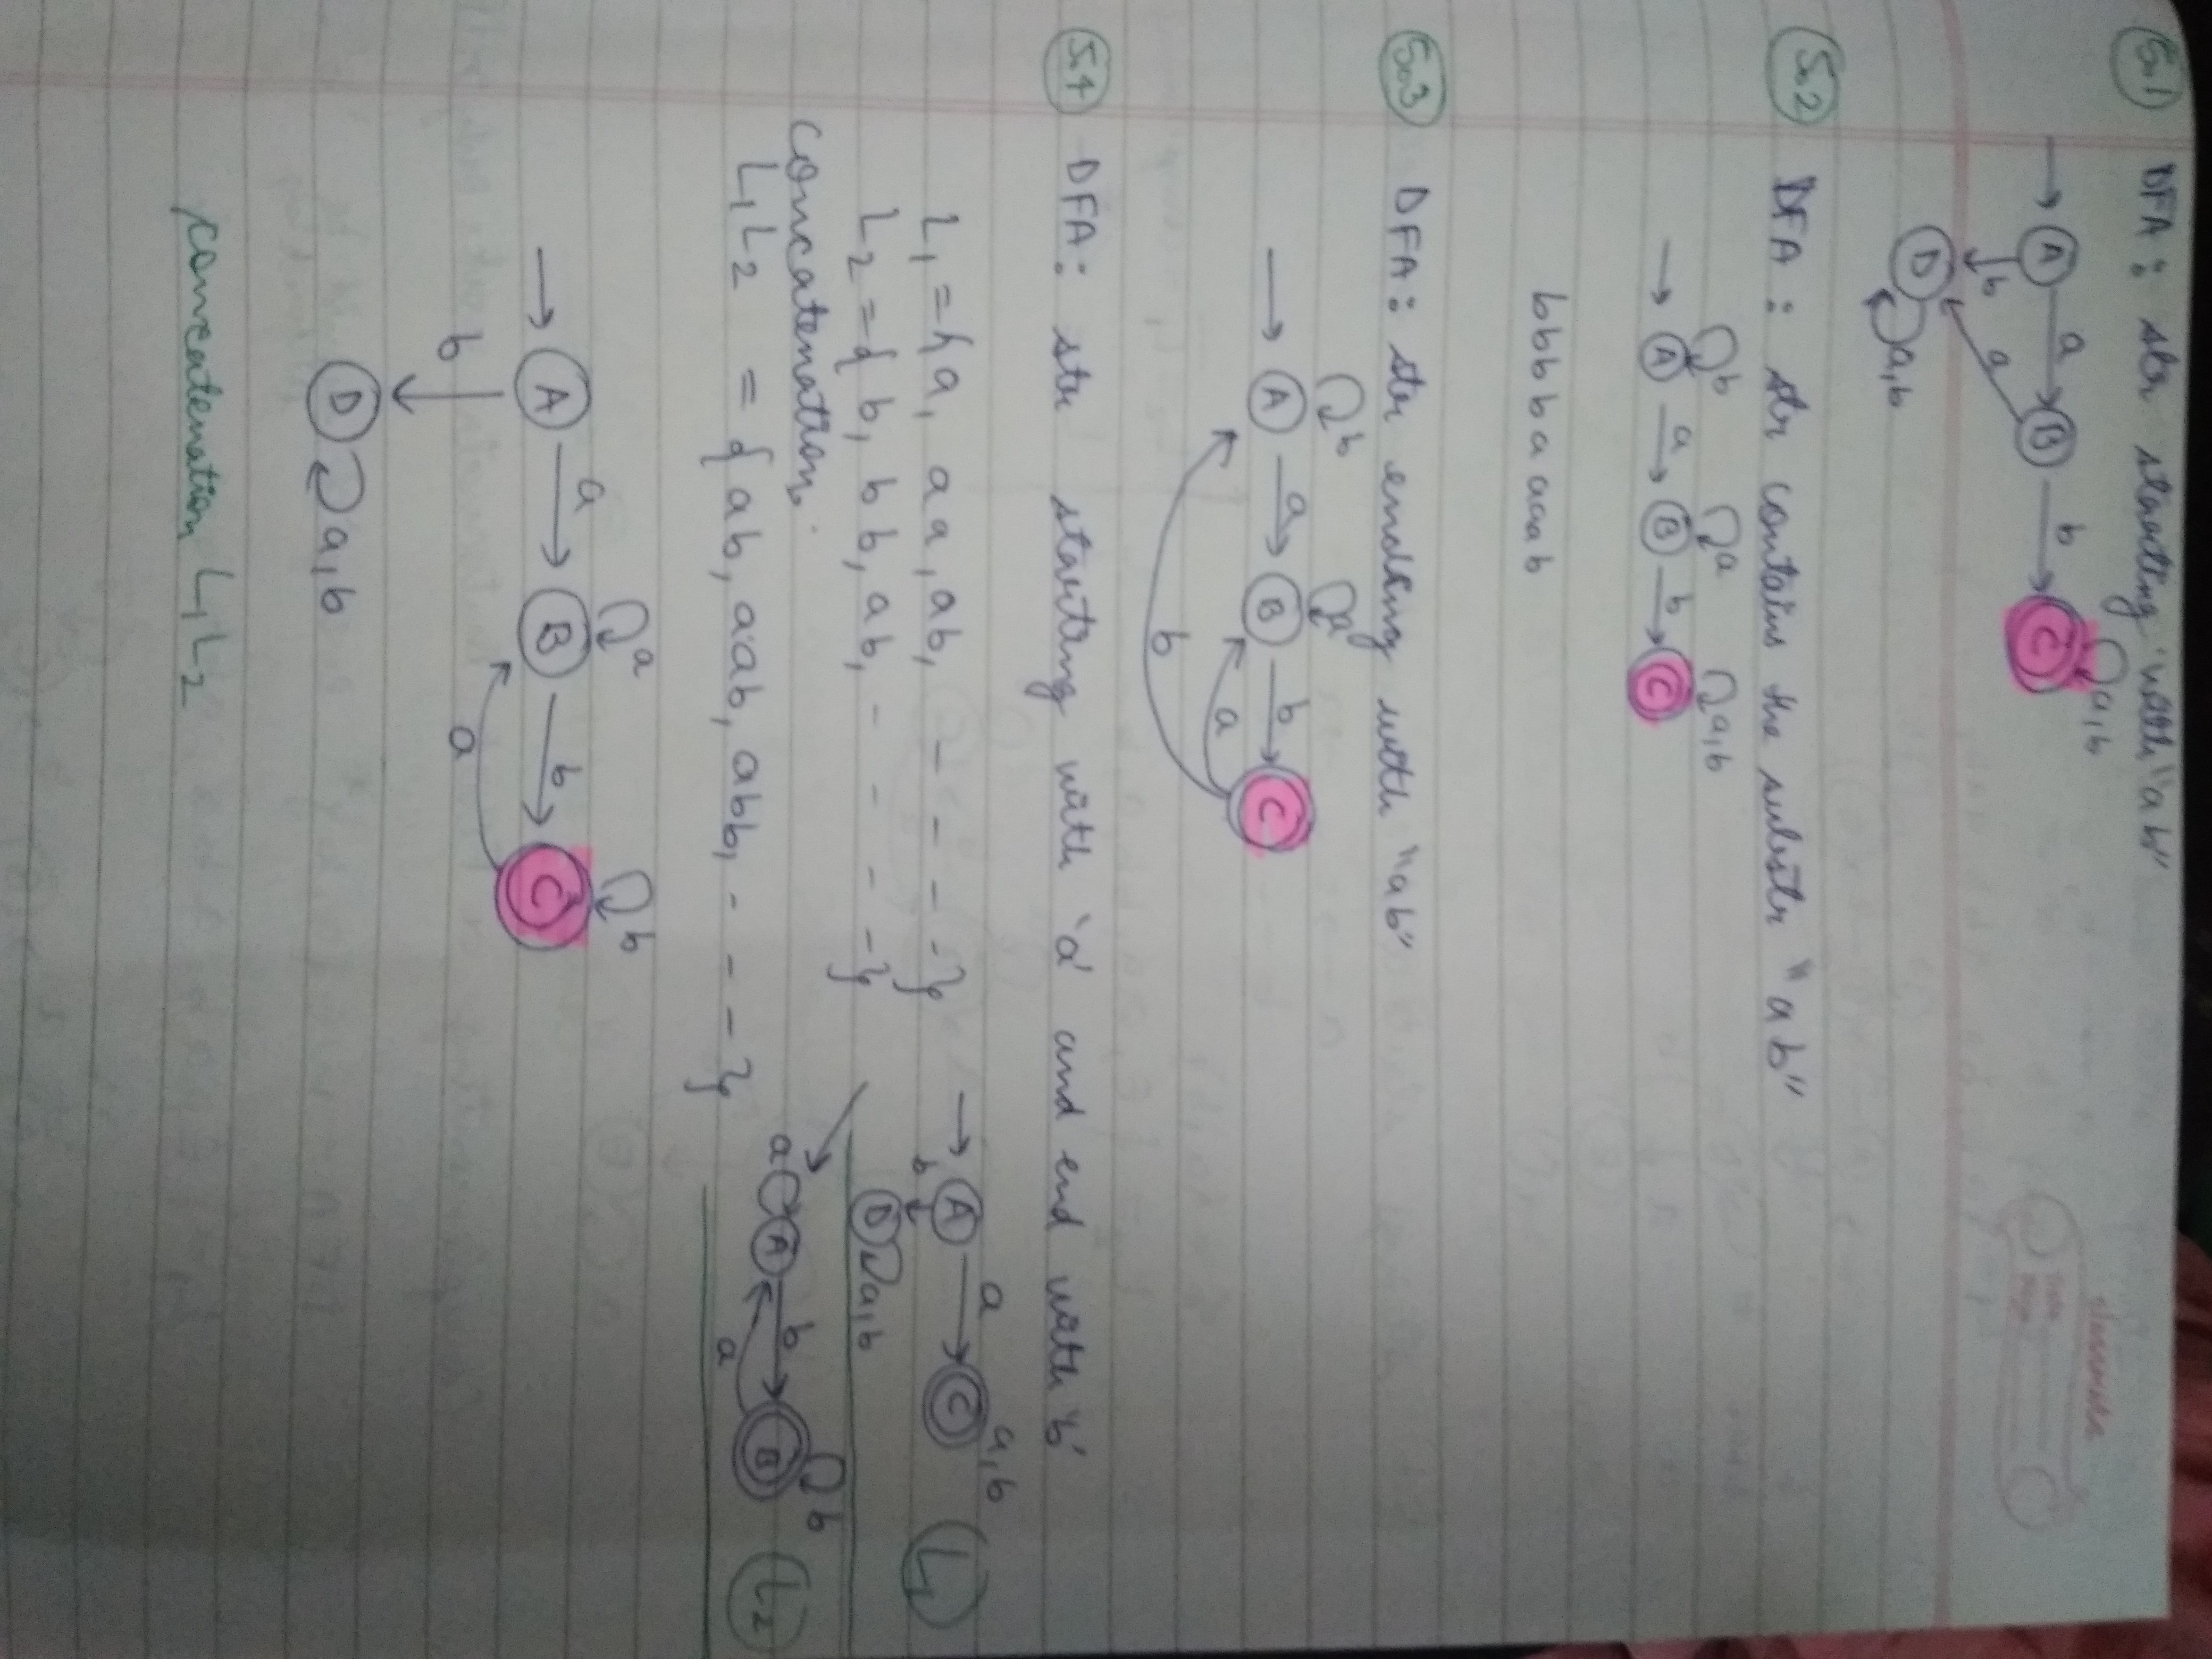 5.1 DFA : str starting with "ab"
→ A a B b C a,b
b a
D a,b
5.2 DFA : str contains the substr "ab"
b a a,b
→ A a B b C
b b b b a a a b
5.3 DFA : str ending with "ab"
b a
→ A a B b C
a
b
5.4 DFA : str starting with 'a' and end with 'b'
L1 = { a, aa, ab, - - - - }
L2 = { b, bb, ab, - - - - }
Concatenation,
L1L2 = { ab, aab, abb, - - - }
→ A a C a,b L1
b
D a,b
a A b B b L2
a
a b
→ A a B b C
b a
D a,b
concatenation L1L2